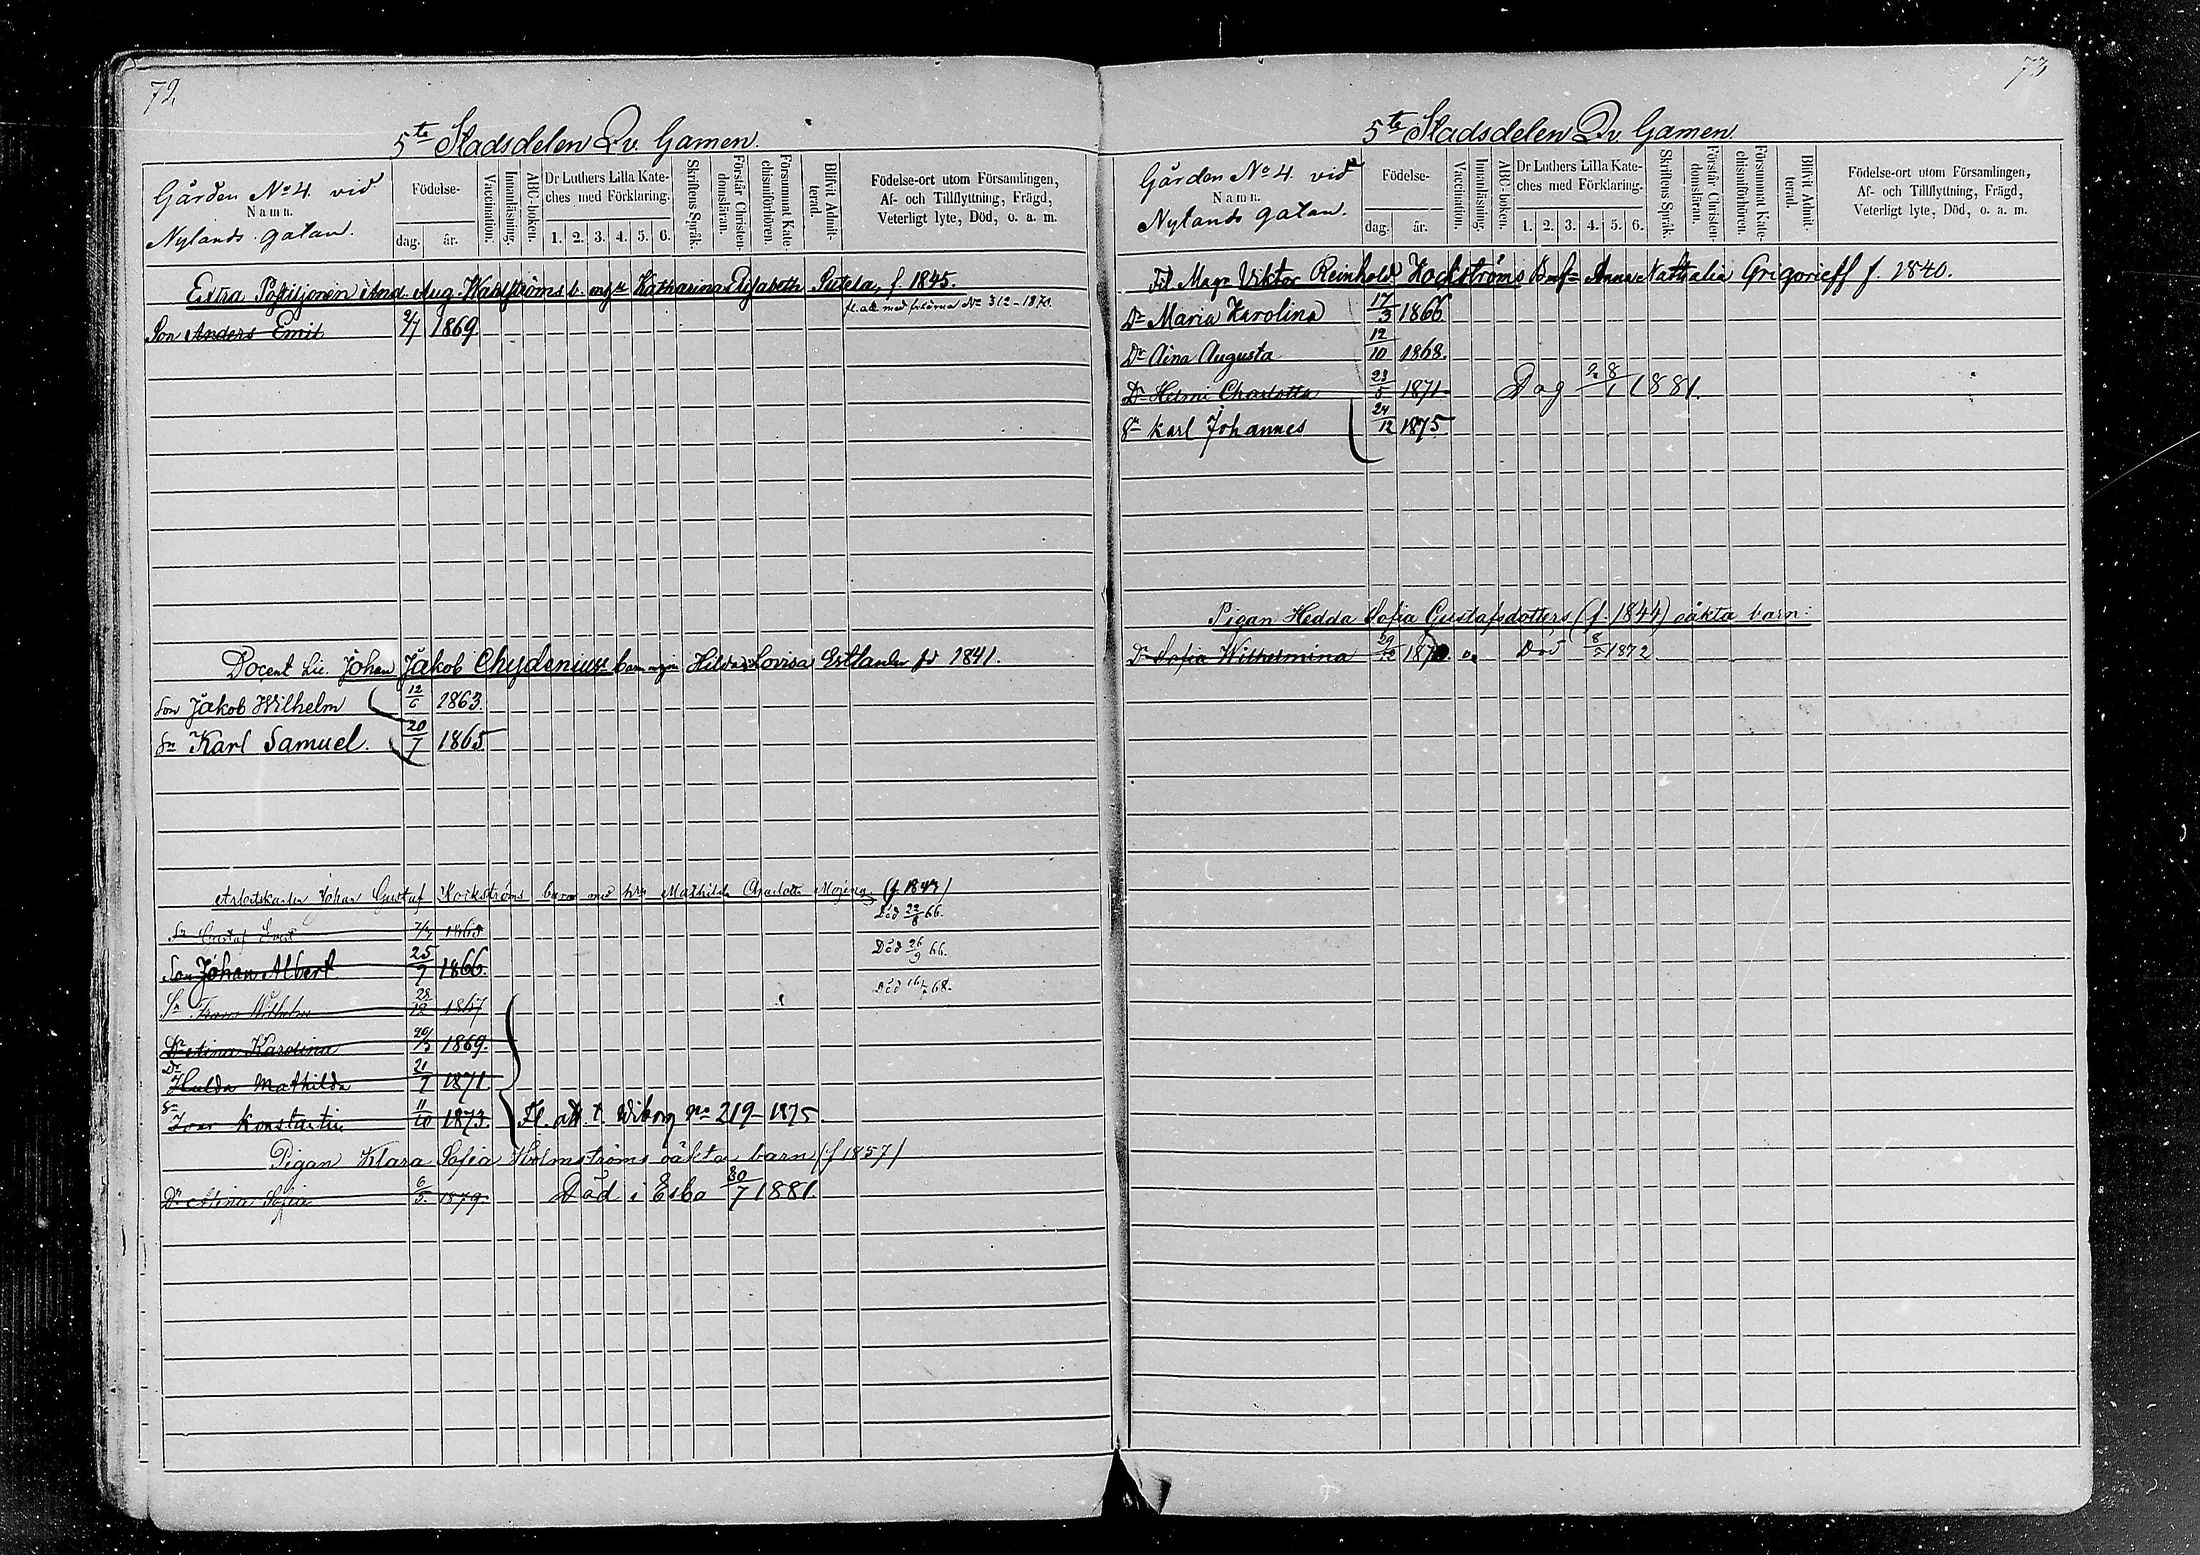 72.
5te Stadsdelen Qv. Gamen.
Gården No 4. vid
Namn.
Nylands gatan.
Födelse-
dag. år.
Vaccination.
Innanläsning.
ABC-boken.
Dr Luthers Lilla Kate-
ches med Förklaring.
1. 2. 3. 4. 5. 6.
Skriftens Språk.
Förstår Christen-
domsläran.
Försummat Kate-
chismiförhören.
Blifvit Admit-
terad.
Födelse-ort utom Församlingen,
Af- och Tillflyttning, Frägd,
Veterligt lyte, Död, o. a. m.
Extra Postiljonen And. Aug. Wahlströms b. Katharina Elisabeth Sutela, f. 1845.
No 312-1870
Son Anders Emil 2/7 1869.
Docent Lic. Johan Jakob Chydenius barn Hilda Lovisa Estlander 1841.
Son Jakob Wilhelm 12/6 1863.
Sn Karl Samuel. 20/7 1865
Arbetskarlen Johan Gustaf Kockströms barn med h Mathilda Charlotta (f 1843)
Sn Gustaf Emil 1865 Död 22/8 66.
Son Johan Albert 25/7 1866. Död 26/9 66.
Sn Frans Wilhelm 28/12 1867 Död 68.
Dr Aina Karolina 20/3 1869.
Dr Hulda Mathilda 21/7 1871
Sn Ivar Konstantin 11/10 1873. Fl. att. t. Wiborg No 219-1875
Pigan Klara Sofia Holmströms oäkta barn (f 1857)
Dr Alina Sofia 6/5 1879. Död i Esbo 30/7 1881.
73
5te Stadsdelen Qv. Gamen
Gården No 4. vid
Namn.
Nylands gatan.
Födelse-
dag. år.
Vaccination.
Innanläsning.
ABC-boken.
Dr Luthers Lilla Kate-
ches med Förklaring.
1. 2. 3. 4. 5. 6.
Skriftens Språk.
Förstår Christen-
domsläran.
Försummat Kate-
chismiförhören.
Blifvit Admit-
terad.
Födelse-ort utom Församlingen,
Af- och Tillflyttning, Frägd,
Veterligt lyte, Död, o. a. m.
Fil Magr Viktor Reinhold Kockströms Anna Nathalia Grigorieff f. 1840.
Dr Maria Karolina 17/3 1866
Dr Aina Augusta 12/10 1868.
Dr Helmi Charlotta 23/5 1871 Dog 28/1 1881.
Sn Karl Johannes 24/12 1875
Pigan Hedda Sofia Gustafsdotters (f. 1844) oäkta barn:
Dr Sofia Wilhelmina 29/12 Död 8/5 1872